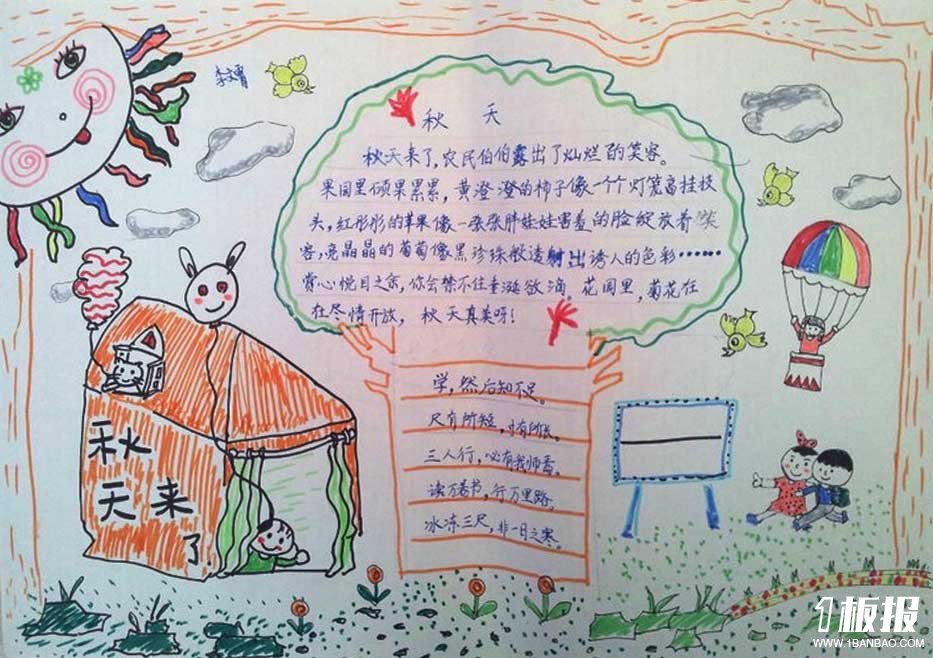 秋 天
秋天来了，农民伯伯露出了灿烂的笑容。
果园里硕果累累，黄澄澄的柿子像一个个灯笼高挂枝
头，红彤彤的苹果像一张张胖娃娃害羞的脸绽放着笑
容，亮晶晶的葡萄像黑珍珠般透射出诱人的色彩……
赏心悦目之余，你会禁不住垂涎欲滴。花园里，菊花在
在尽情开放，秋天真美呀！
学，然后知不足。
尺有所短，寸有所长。
三人行，必有我师焉。
读万卷书，行万里路。
冰冻三尺，非一日之寒。
秋
天来
了
1板报
WWW.1BANBAO.COM